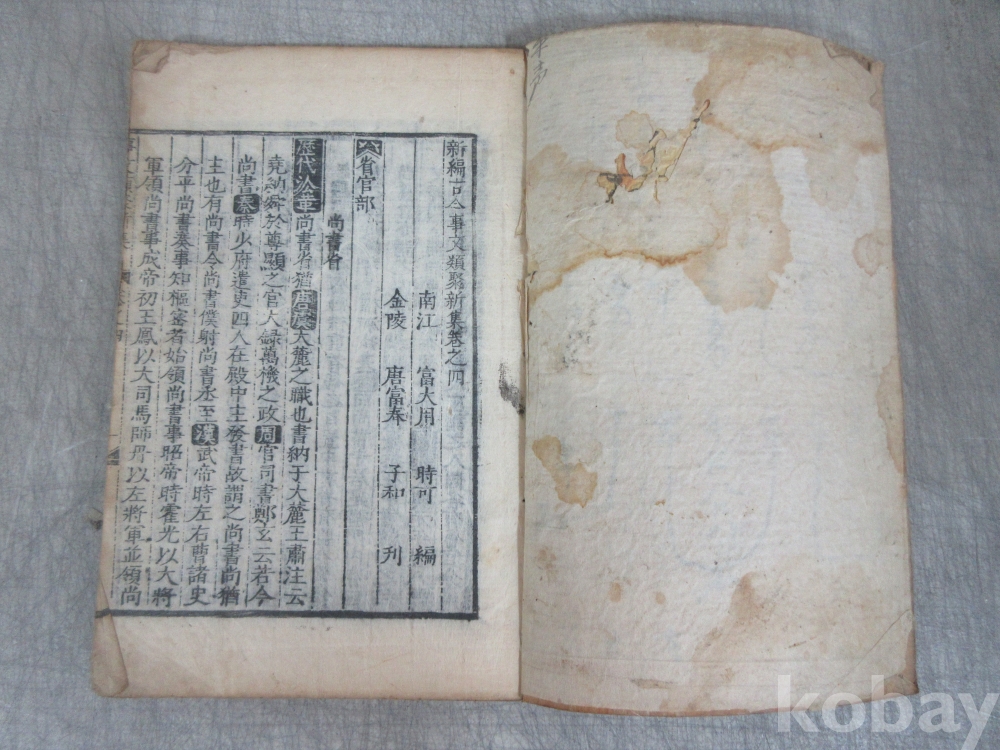 新編古今事文類聚新集卷之四
南江 富大用 時可 編
金陵 唐富春 子和 刊
省官部
尚書省
歷代沿革 尚書省猶唐虞大麓之職也書納于大麓王肅注云
堯納舜於尊顯之官大錄萬機之政周官司書鄭玄云若今
尚書秦時少府遣吏四人在殿中主發書故謂之尚書尚猶
主也有尚書令尚書僕射尚書丞至漢武帝時左右曹諸史
分平尚書奏事知樞密者始領尚書事昭帝時霍光以大將
軍領尚書事成帝初王鳳以大司馬師丹以左將軍並領尚
kobay